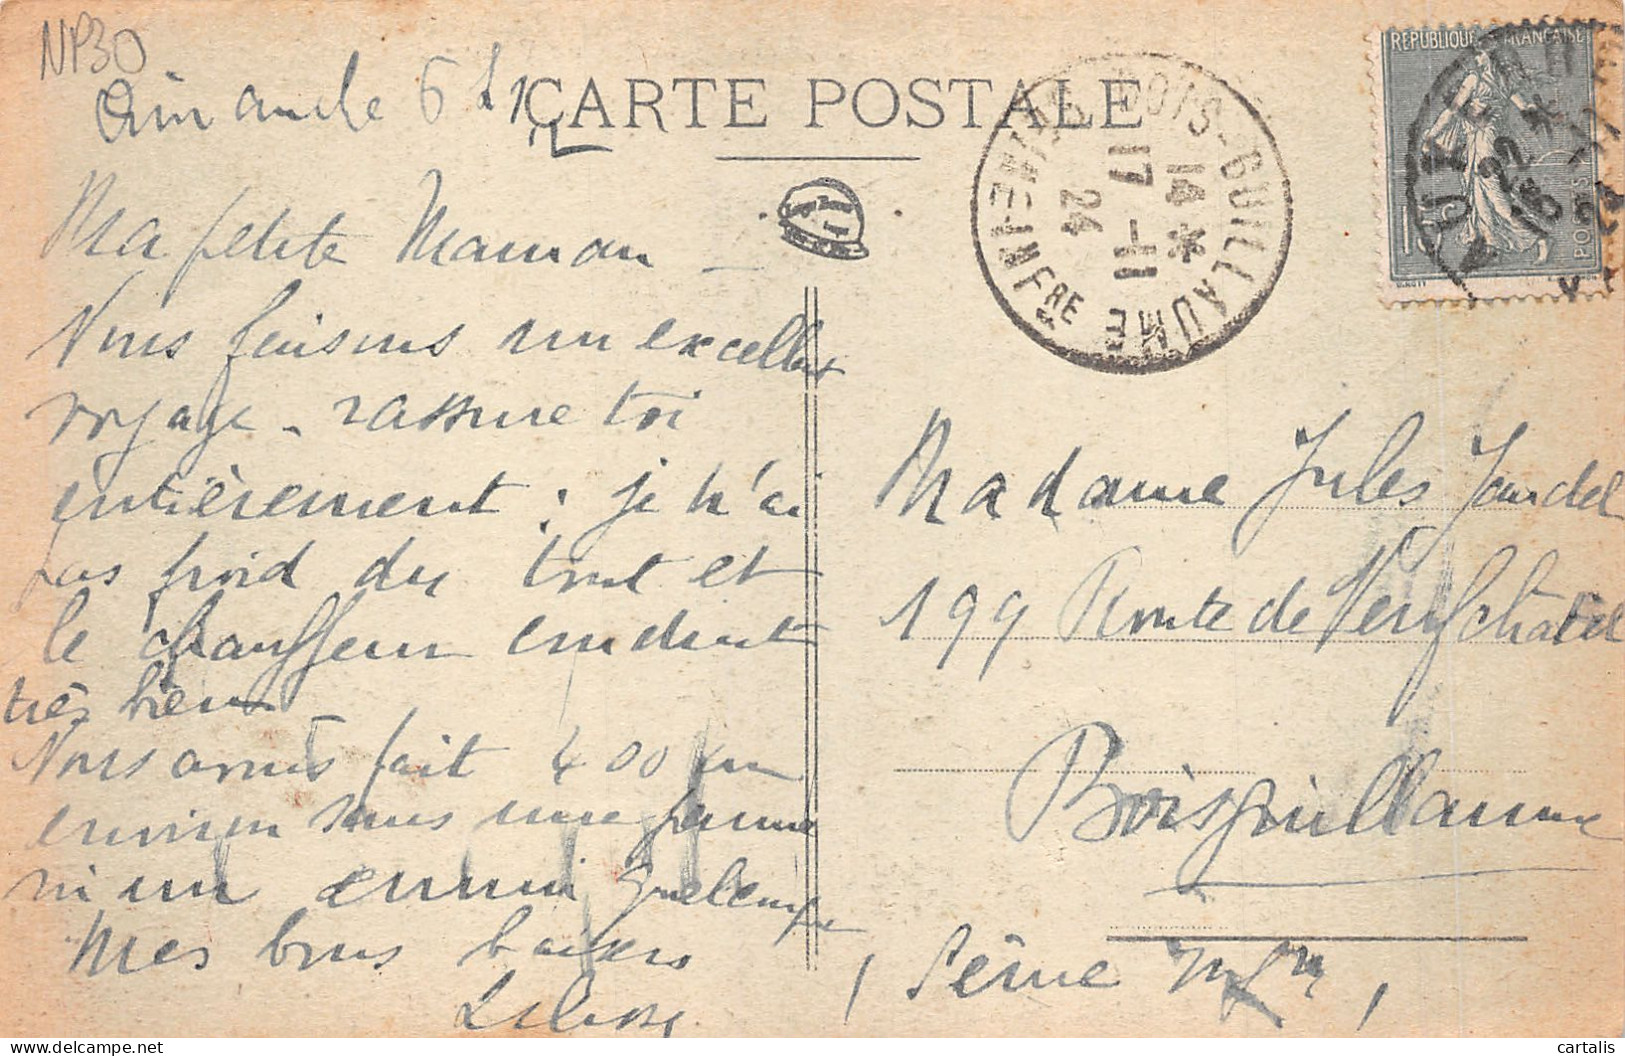 NP30
Dimanche 6 h
CARTE POSTALE
Ma petite Maman
Nous faisons un excellent
voyage - rassure toi
entièrement : je n'ai
pas froid du tout et
le chauffeur conduit
très bien
Nous avons fait 400 km
environ sans une panne
ni un ennui quelconque
Mes bons baisers
REPUBLIQUE FRANÇAISE
15
POSTES
22
15
BOIS-GUILLAUME
14 *
17 -11
24
SEINE-INFRE
Madame Jules Jourdel
199 Route de Neufchâtel
Boisguillaume
(Seine Infre)
cartalis